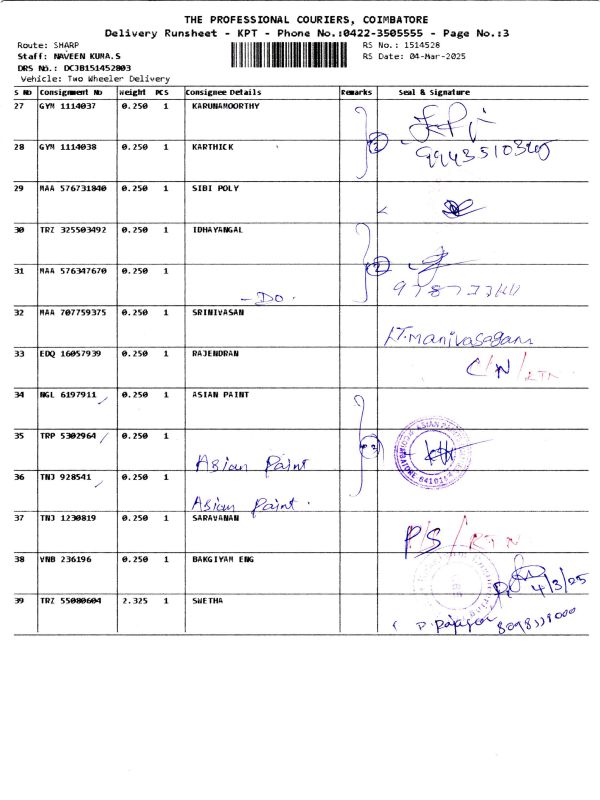 THE PROFESSIONAL COURIERS, COIMBATORE
Delivery Runsheet - KPT - Phone No.:0422-3505555 - Page No.:3
Route: SHARP
RS No.: 1514528
Staff: NAVEEN KUMA.S
RS Date: 04-Mar-2025
DRS No.: DCJB151452803
Vehicle: Two Wheeler Delivery
S NO Consignment No Weight PCS Consignee Details Remarks Seal & signature
27 GYM 1114037 0.250 1 KARUNAMOORTHY
28 GYM 1114038 0.250 1 KARTHICK
29 MAA 576731840 0.250 1 SIBI POLY
30 TRZ 325503492 0.250 1 IDHAYANGAL
31 MAA 576347670 0.250 1
- DO - 2
32 MAA 707759375 0.250 1 SRINIVASAN
33 EDQ 16057939 0.250 1 RAJENDRAN
C/N/RTN
34 NGL 6197911 0.250 1 ASIAN PAINT
35 TRP 5302964 0.250 1
Asian Paint
36 TNJ 928541 0.250 1
Asian Paint
37 TNJ 1230819 0.250 1 SARAVANAN
P/S/RTN
38 VNB 236196 0.250 1 BAKGIYAM ENG
4/3/25
39 TRZ 55080604 2.325 1 SWETHA